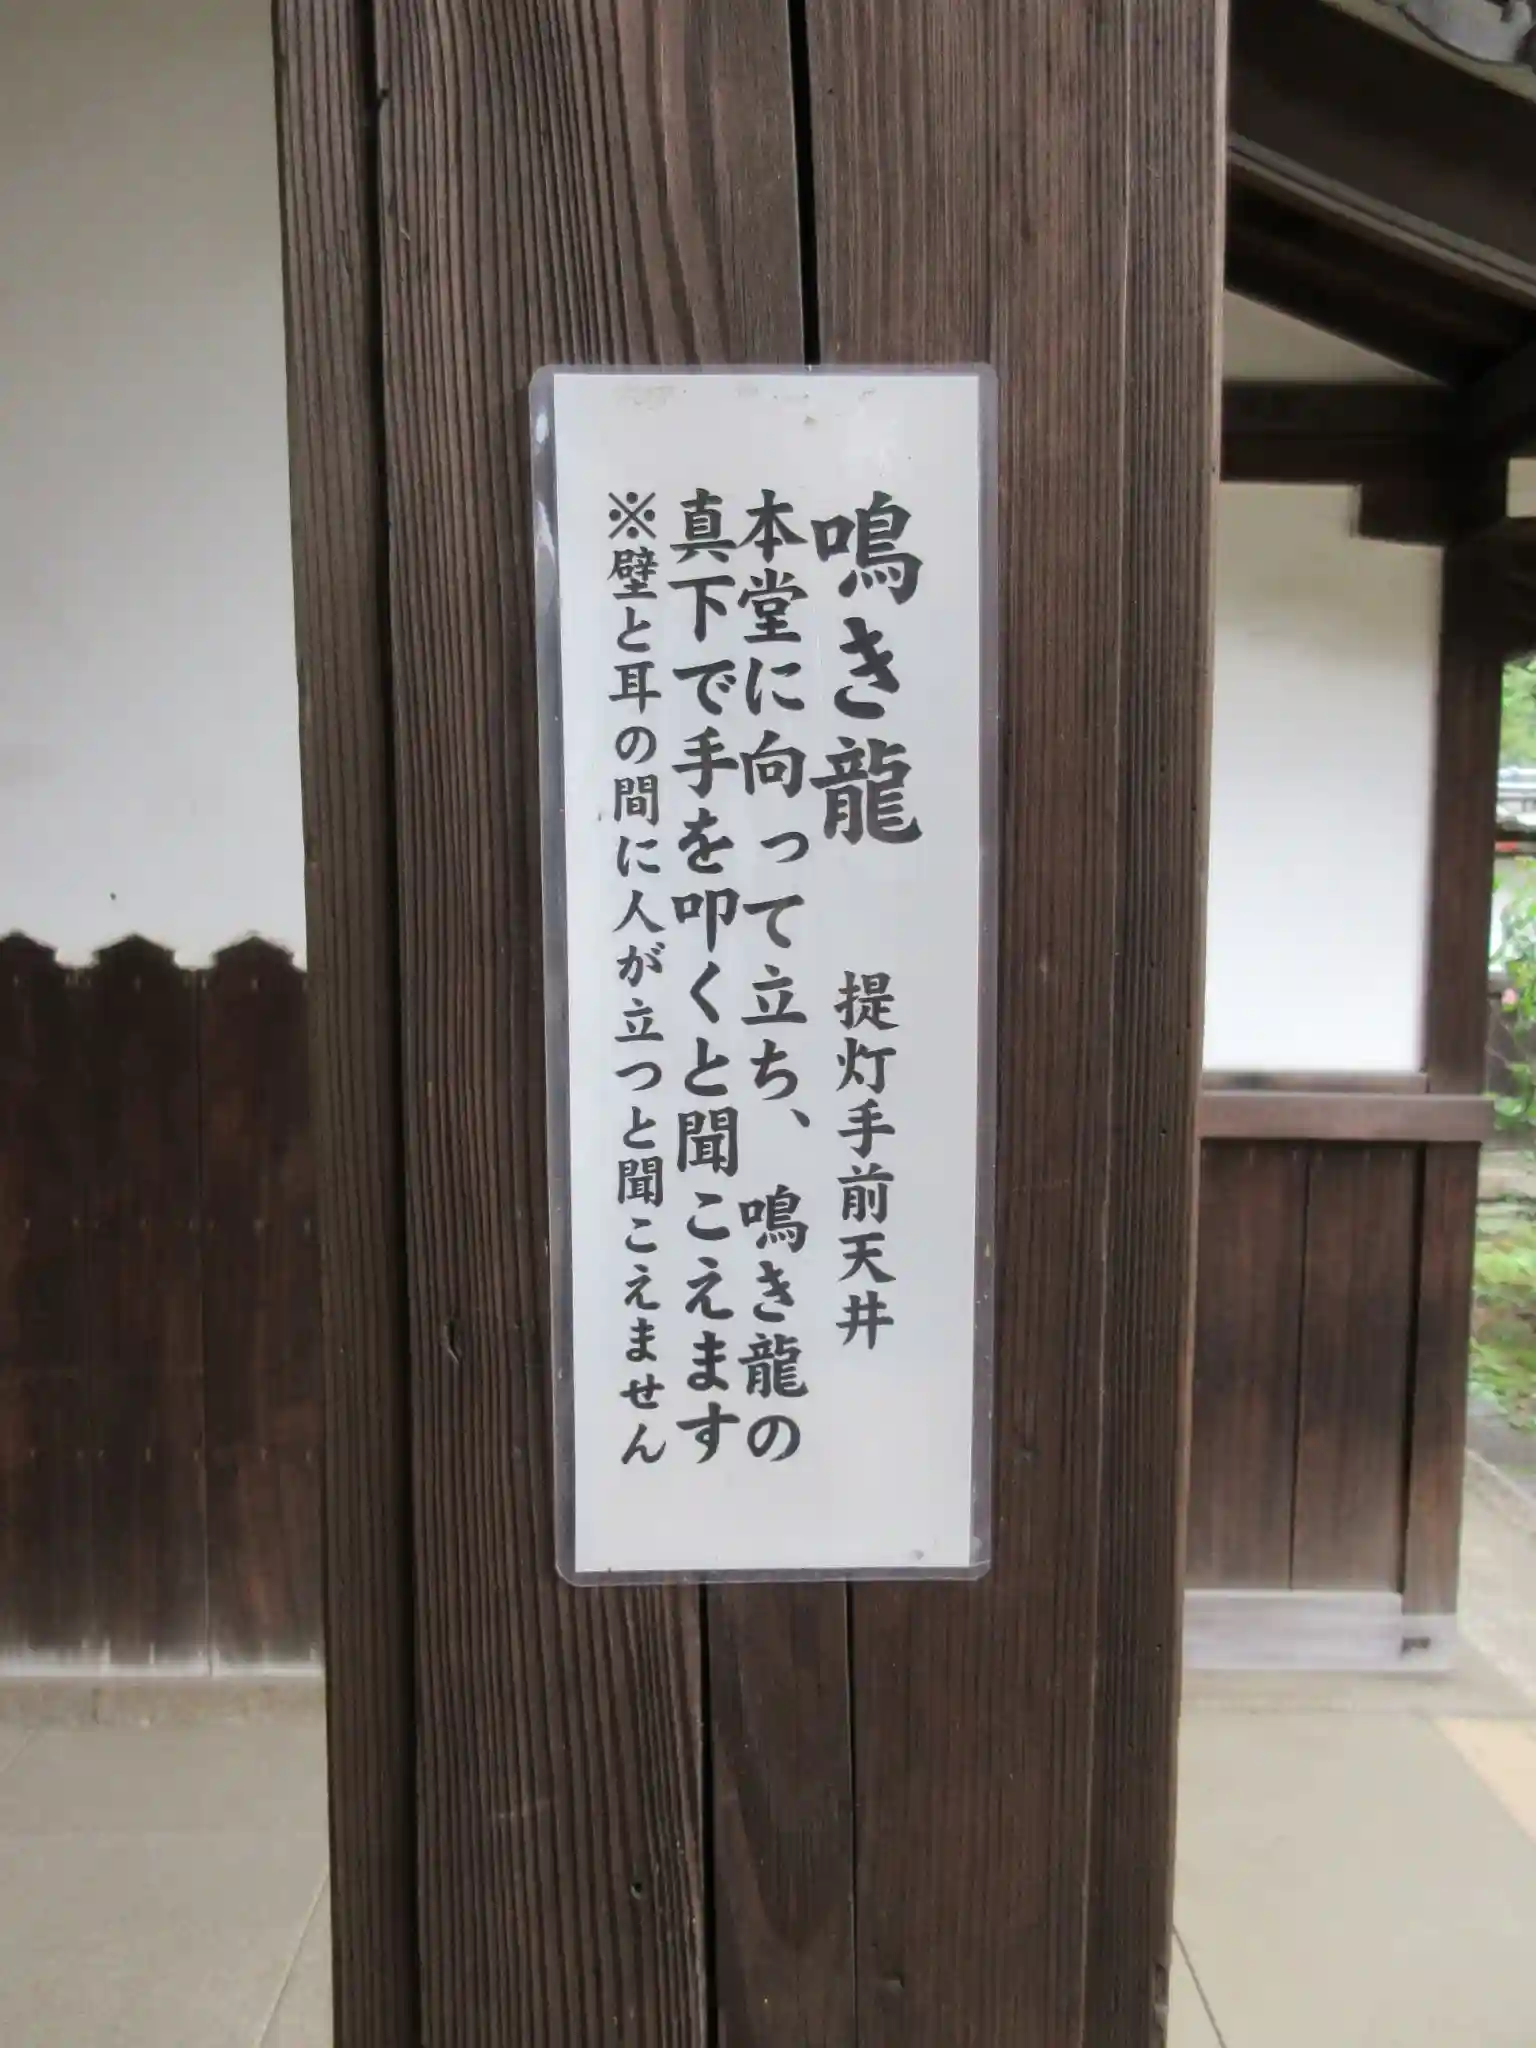 鳴き龍 提灯手前天井
本堂に向って立ち、鳴き龍の
真下で手を叩くと聞こえます
※壁と耳の間に人が立つと聞こえません